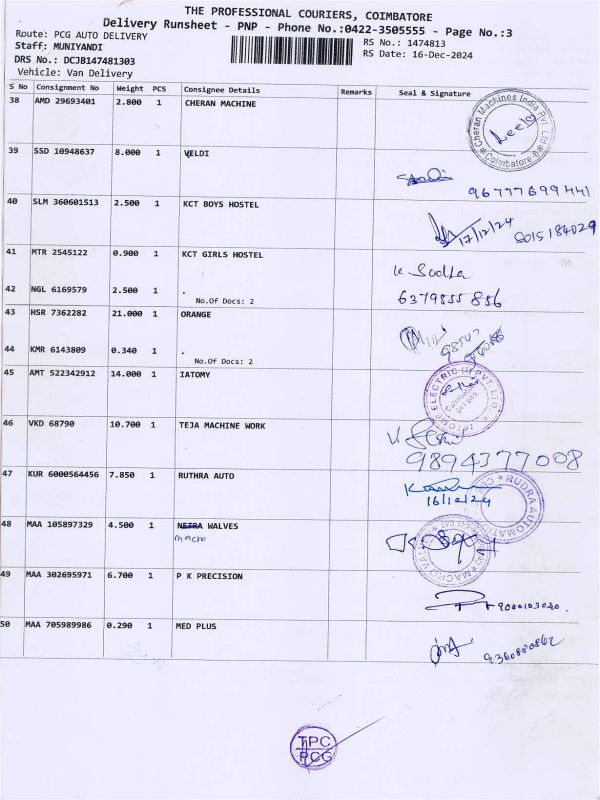 THE PROFESSIONAL COURIERS, COIMBATORE
Delivery Runsheet - PNP - Phone No.:0422-3505555 - Page No.:3
Route: PCG AUTO DELIVERY
RS No.: 1474813
Staff: MUNIYANDI
RS Date: 16-Dec-2024
DRS No.: DCJB147481303
Vehicle: Van Delivery
S No Consignment No Weight PCS Consignee Details Remarks Seal & Signature
38 AMD 29693401 2.800 1 CHERAN MACHINE
Cheran Machines India Pvt. Ltd
Coimbatore-6
39 SSD 10948637 8.000 1 VELDI
96777699441
40 SLM 360601513 2.500 1 KCT BOYS HOSTEL
17/12/24 8015184029
41 MTR 2545122 0.900 1 KCT GIRLS HOSTEL
42 NGL 6169579 2.500 1 .
No.Of Docs: 2
6379555 856
43 HSR 7362282 21.000 1 ORANGE
44 KMR 6143809 0.340 1 .
No.Of Docs: 2
45 AMT 522342912 14.000 1 IATOMY
ELECTRIC (I) PVT. LTD.
Coimbatore
46 VKD 68790 10.700 1 TEJA MACHINE WORK
9894377008
47 KUR 6000564456 7.850 1 RUTHRA AUTO
16/12/24
RUDRA AUTOMATI
48 MAA 105897329 4.500 1 NETRA WALVES
macro
49 MAA 302695971 6.700 1 P K PRECISION
9080103020.
50 MAA 705989986 0.290 1 MED PLUS
9360800862
TPC
PCG